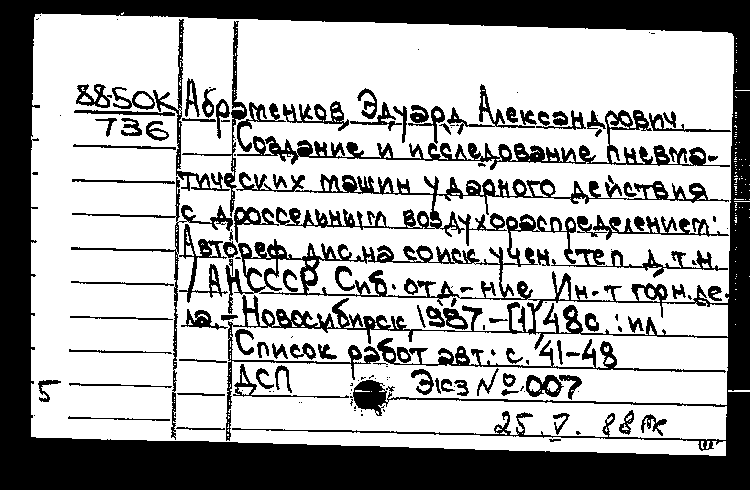 88-50К
736
Абраменков, Эдуард Александрович.
Создание и исследование пневма-
тических машин ударного действия
с дроссельным воздухораспределением:
Автореф. дис. на соиск. учен. степ. д.т.н.
/АН СССР, Сиб. отд-ние, Ин-т горн. де-
ла. – Новосибирск, 1987. – [1], 48 с. : ил.
Список работ авт.: с. 41-48
ДСП Экз № 007
5
25.V.88